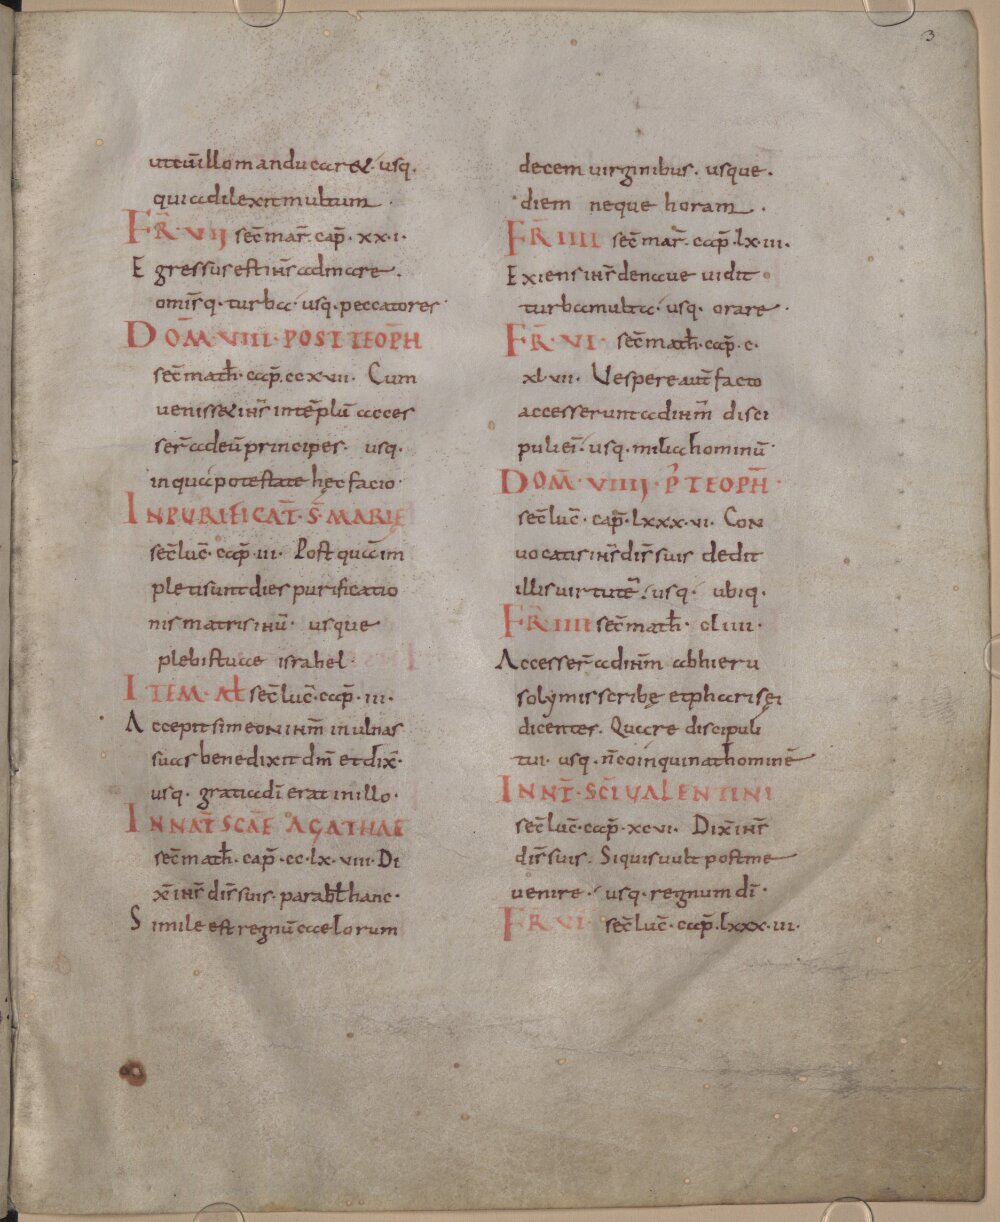 3
utcū illo manducar& · usq·
quia dilexit multum ·
FR̄ · VII sec̄ mar̄ · cap̄ · xx·i·
Egressus est ih̄s ad mare ·
omīsq· turba · usq· peccatores
DOM̄ · VIII · POST TEOPH̄
sec̄ math̄ · cap̄ · ccxvii · Cum
veniss& ih̄s in tēplū acces
ser̄ ad eū principes · usq·
in qua potestate hęc facio ·
IN PURIFICAT̄ · S̄ MARIĘ
sec̄ luc̄ · cap̄ · iii · Postquam
pleti sunt dies purificatio
nis matris ih̄u · usque
plebis tuae israhel ·
ITEM · AL sec̄ luc̄ · cap̄ · iii ·
Accepit simeon ih̄m in ulnas
suas benedixit dm̄ et dix̄ ·
usq· gratia dī erat in illo ·
IN NAT̄ SCAĒ AGATHAE
sec̄ math̄ · cap̄ · cc·lx·viii · Di
x̄ ih̄s dis̄ suis · parabł hanc ·
Simile est regnū caelorum
decem virginibus · usque ·
diem neque horam ·
FR̄ IIII sec̄ mar̄ · cap̄ · lx·iii ·
Exiens ih̄s de naue uidit
turba multa · usq· orare ·
FR̄ · VI · sec̄ math̄ · cap̄ · c·
xl·vii · Vespere aut̄ facto
accesserunt ad ih̄m disci
puli eī · usq· milia hominū ·
DOM̄ · VIIII · P̄ TEOPH̄ ·
sec̄ luc̄ · cap̄ · lxxx·vi · Con
uocatis ih̄s dis̄ suis dedit
illis uirtutē · usq· ubiq·
FR̄ IIII sec̄ math̄ · cliiii ·
Accesser̄ ad ih̄m ab hieru
solymis scribę et pharisęi
dicentes · Quare discipuli
tui · usq· n̄ coinquinat hominē
IN NT̄ · SC̄I VALENTINI
sec̄ luc̄ · cap̄ · xcvi · Dix̄ ih̄s
dis̄ suis · Si quis uult post me
uenire · usq· regnum dī ·
FR̄ VI · sec̄ luc̄ · cap̄ · lxxx·iii ·